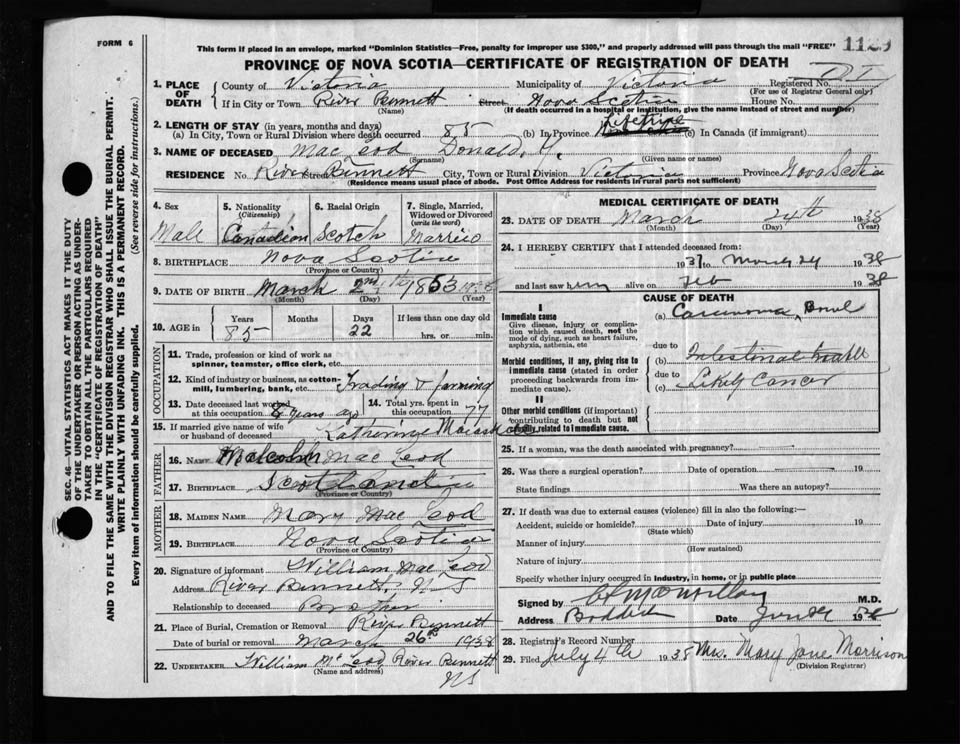 FORM 6
This form if placed in an envelope, marked "Dominion Statistics—Free, penalty for improper use $300," and properly addressed will pass through the mail "FREE"
1129
PROVINCE OF NOVA SCOTIA—CERTIFICATE OF REGISTRATION OF DEATH
1. PLACE OF DEATH
County of Victoria Municipality of Victoria Registered No.
(For use of Registrar General only)
If in City or Town River Bennett Street Nova Scotia House No.
(Name) (If death occurred in a hospital or institution, give the name instead of street and number)
2. LENGTH OF STAY (in years, months and days)
(a) In City, Town or Rural Division where death occurred 85 (b) In Province Lifetime (c) In Canada (if immigrant)
3. NAME OF DECEASED MacLeod Donald, H.
(Surname) (Given name or names)
RESIDENCE No. River Street Bennett City, Town or Rural Division Victoria Province Nova Scotia
(Residence means usual place of abode. Post Office Address for residents in rural parts not sufficient)
4. Sex Male
5. Nationality (Citizenship) Canadian
6. Racial Origin Scotch
7. Single, Married, Widowed or Divorced (write the word) Married
8. BIRTHPLACE Nova Scotia
(Province or Country)
9. DATE OF BIRTH March 2nd 1853
(Month) (Day) (Year)
10. AGE in Years Months Days If less than one day old
85 22 hrs. or min.
OCCUPATION
11. Trade, profession or kind of work as spinner, teamster, office clerk, etc.
12. Kind of industry or business, as cotton-mill, lumbering, bank, etc. Trading & farming
13. Date deceased last worked at this occupation 8 years ago
14. Total yrs. spent in this occupation 77
15. If married give name of wife or husband of deceased Katherine
FATHER
16. Name Malcolm MacLeod
17. Birthplace
(Province or Country)
MOTHER
18. Maiden Name Mary MacLeod
19. Birthplace Nova Scotia
(Province or Country)
20. Signature of informant William MacLeod
Address River Bennett, N.S
Relationship to deceased Brother
21. Place of Burial, Cremation or Removal River Bennett
Date of burial or removal March 26th 1938
22. UNDERTAKER William McLeod River Bennett
(Name and address) NS
MEDICAL CERTIFICATE OF DEATH
23. DATE OF DEATH March 24th 1938
(Month) (Day) (Year)
24. I HEREBY CERTIFY that I attended deceased from:
1937 to March 24 1938
and last saw him alive on Feb 1938
CAUSE OF DEATH
Immediate cause
Give disease, injury or complication which caused death, not the mode of dying, such as heart failure, asphyxia, asthenia, etc
(a) Carcinoma, Bowel
due to
Morbid conditions, if any, giving rise to immediate cause (stated in order proceeding backwards from immediate cause)
(b) Intestinal
due to
(c) Likely Cancer
II
Other morbid conditions (if important) contributing to death but not causally related to immediate cause.
25. If a woman, was the death associated with pregnancy?
26. Was there a surgical operation? Date of operation 19
State findings Was there an autopsy?
27. If death was due to external causes (violence) fill in also the following:—
Accident, suicide or homicide? Date of injury 19
(State which)
Manner of injury
(How sustained)
Nature of injury
Specify whether injury occurred in industry, in home, or in public place
Signed by M.D.
Address Baddeck Date 38
28. Registrar's Record Number
29. Filed July 4th 1938 Mrs. Mary Jane Morrison
(Division Registrar)
SEC. 46—VITAL STATISTICS ACT MAKES IT THE DUTY
OF THE UNDERTAKER OR PERSON ACTING AS UNDER-
TAKER TO OBTAIN ALL THE PARTICULARS REQUIRED
IN THE "CERTIFICATE OF REGISTRATION OF DEATH"
AND TO FILE THE SAME WITH THE DIVISION REGISTRAR WHO SHALL ISSUE THE BURIAL PERMIT.
WRITE PLAINLY WITH UNFADING INK. THIS IS A PERMANENT RECORD.
Every item of information should be carefully supplied. (See reverse side for instructions.)